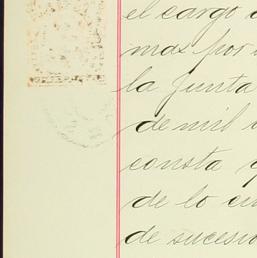 el cargo
mas por
la Junta
de mil
consta
de lo
de